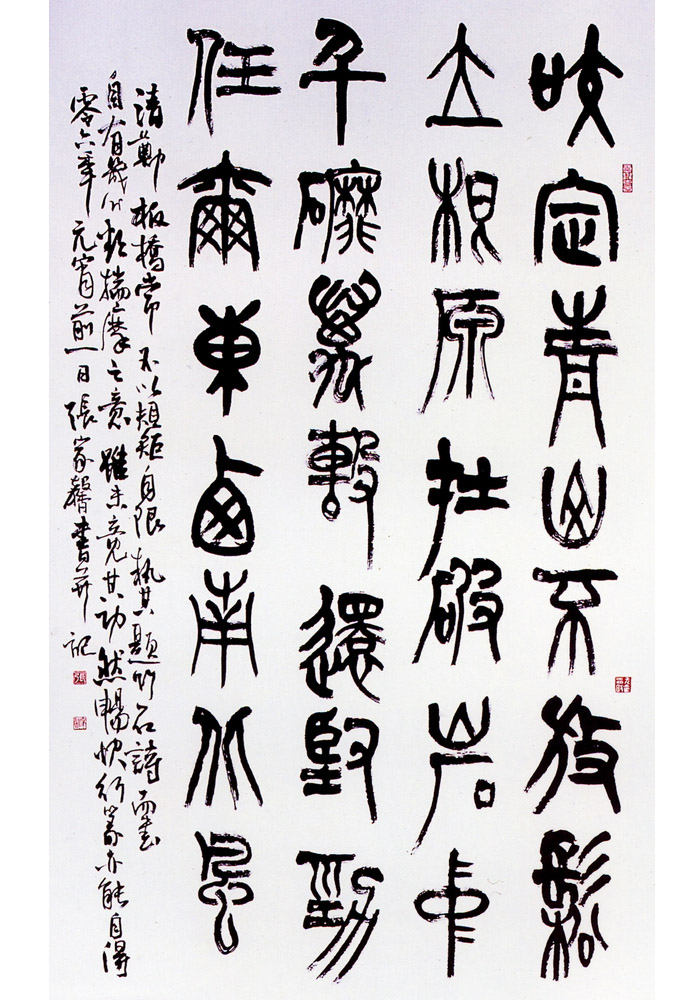 咬定青山不放鬆
立根原在破岩中
千磨萬擊還堅勁
任爾東西南北風
清鄭板橋常不以規矩自限執其題竹石詩而書
自有幾揣摩之意雖未竟其功然暢快行篆亦能自得
零六年元宵前一日張家馨書并記